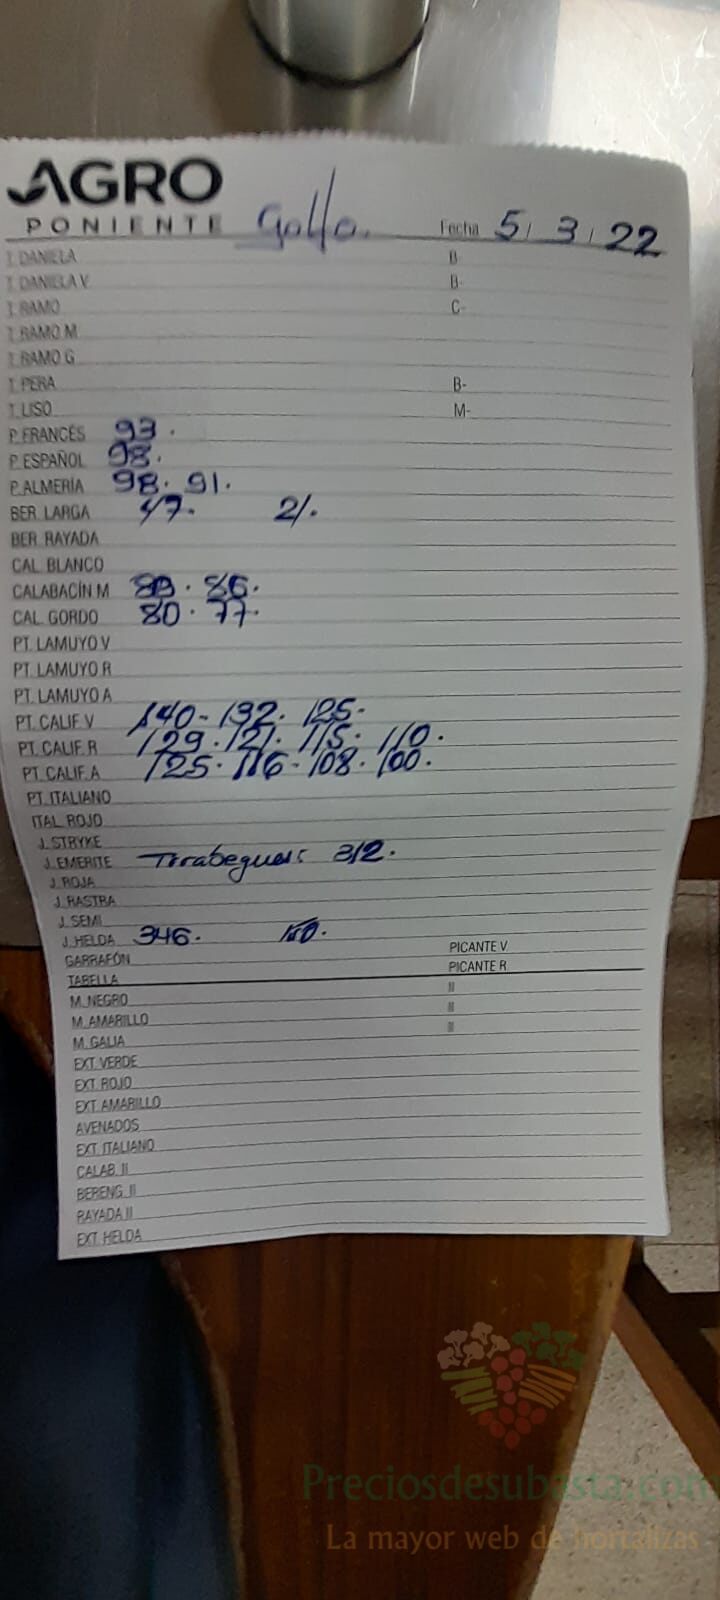 AGRO
PONIENTE Golfo. Fecha 5/3/22
T. DANIELA B-
T. DANIELA V B-
T. RAMO C-
T. RAMO M
T. RAMO G
T. PERA B-
T. LISO M-
P. FRANCÉS 93.
P. ESPAÑOL 98.
P. ALMERÍA 98. 91.
BER. LARGA 47. 21.
BER. RAYADA
CAL. BLANCO
CALABACÍN M 89. 86.
CAL. GORDO 80. 77.
PT. LAMUYO V
PT. LAMUYO R
PT. LAMUYO A
PT. CALIF. V 140-132. 125.
PT. CALIF. R 129. 121. 115. 110.
PT. CALIF. A 125. 116-108. 100.
PT. ITALIANO
ITAL. ROJO
J. STRYKE
J. EMERITE Tirabeques: 312.
J. ROJA
J. RASTRA
J. SEMI
J. HELDA 346.
GARRAFÓN PICANTE V
TABELLA PICANTE R
M. NEGRO II
M. AMARILLO II
M. GALIA II
EXT. VERDE
EXT. ROJO
EXT. AMARILLO
AVENADOS
EXT. ITALIANO
CALAB. II
BERENG. II
RAYADA II
EXT. HELDA
Preciosdesubasta.com
La mayor web de hortalizas